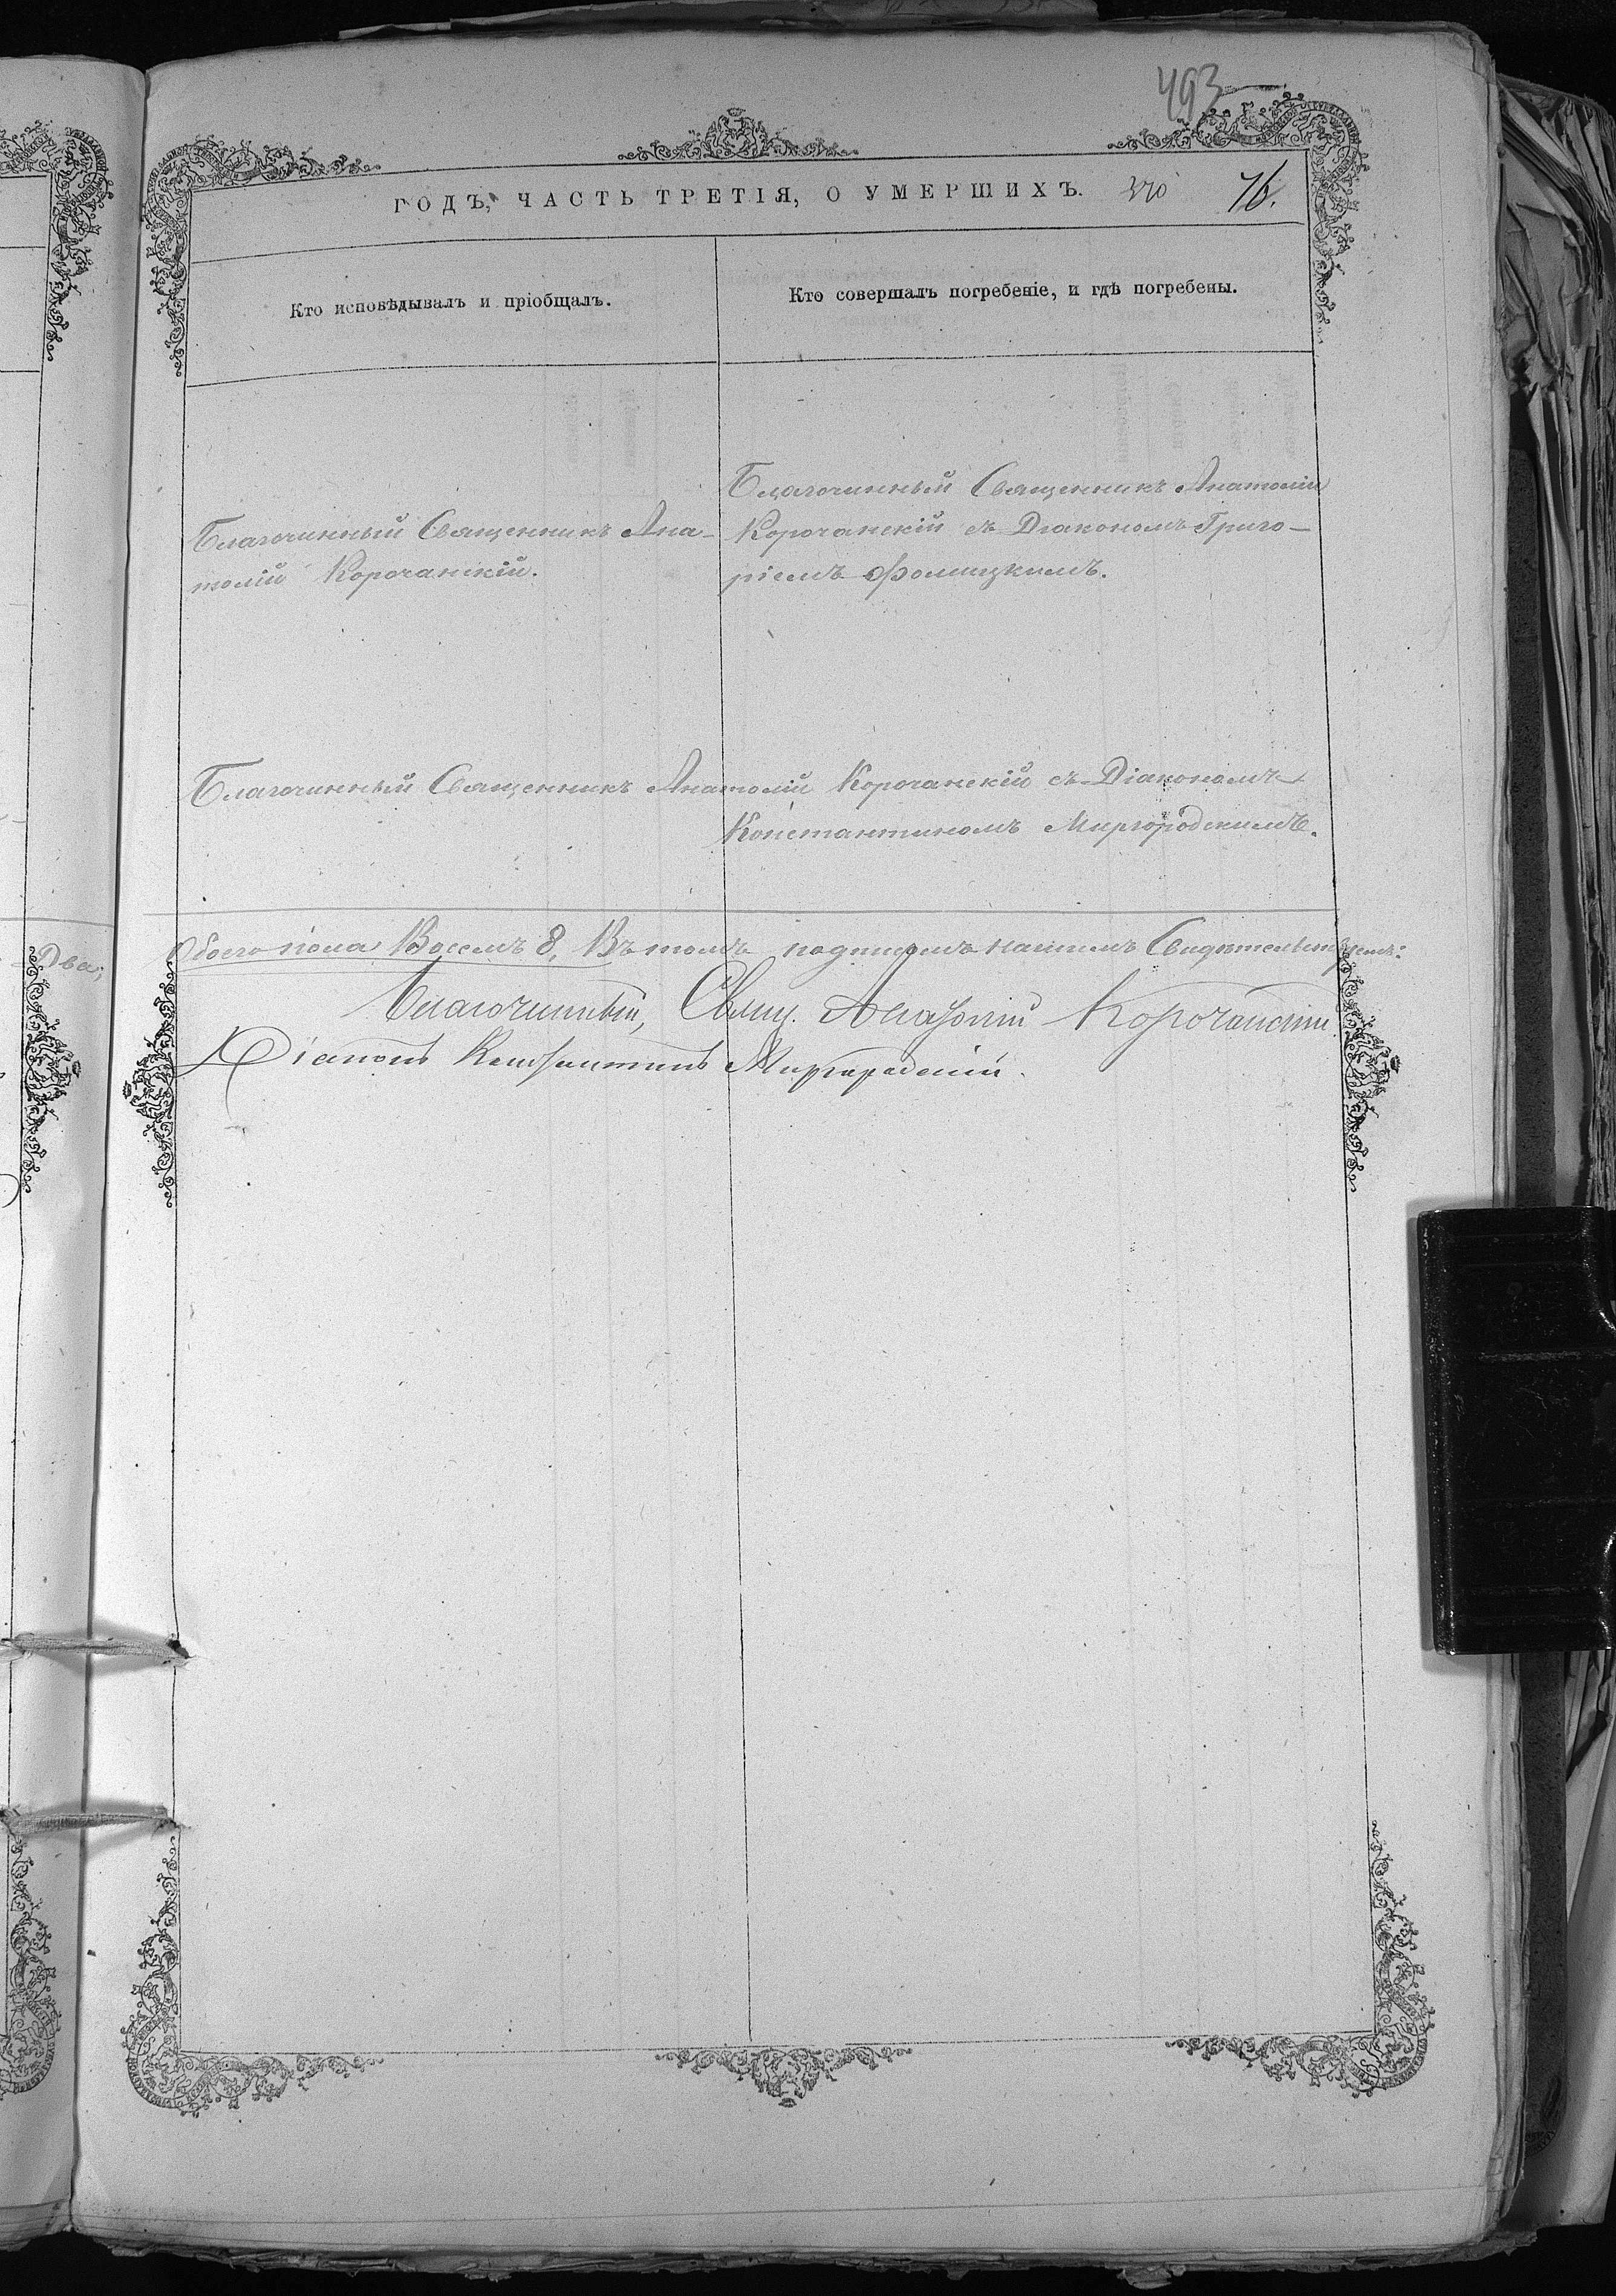 493
ГОДЪ, ЧАСТЬ ТРЕТІЯ, О УМЕРШИХЪ. 370 76.
Кто исповѣдывалъ и пріобщалъ.
Кто совершалъ погребеніе, и гдѣ погребены.
Благочинный Священникъ Ана-
толій Корочанскій.
Благочинный Священникъ Анатолій
Корочанскій съ Діакономъ Григо-
ріемъ Фомицкимъ.
Благочинный Священникъ Анатолій Корочанскій съ Діакономъ
Константиномъ Миргородскимъ.
Два;
Обоего пола Восемь 8. Въ томъ подписомъ нашимъ Свидѣтельствуемъ:
Благочинный, Свящ. Анатолій Корочанскій
Діаконъ Константинъ Миргородскій.